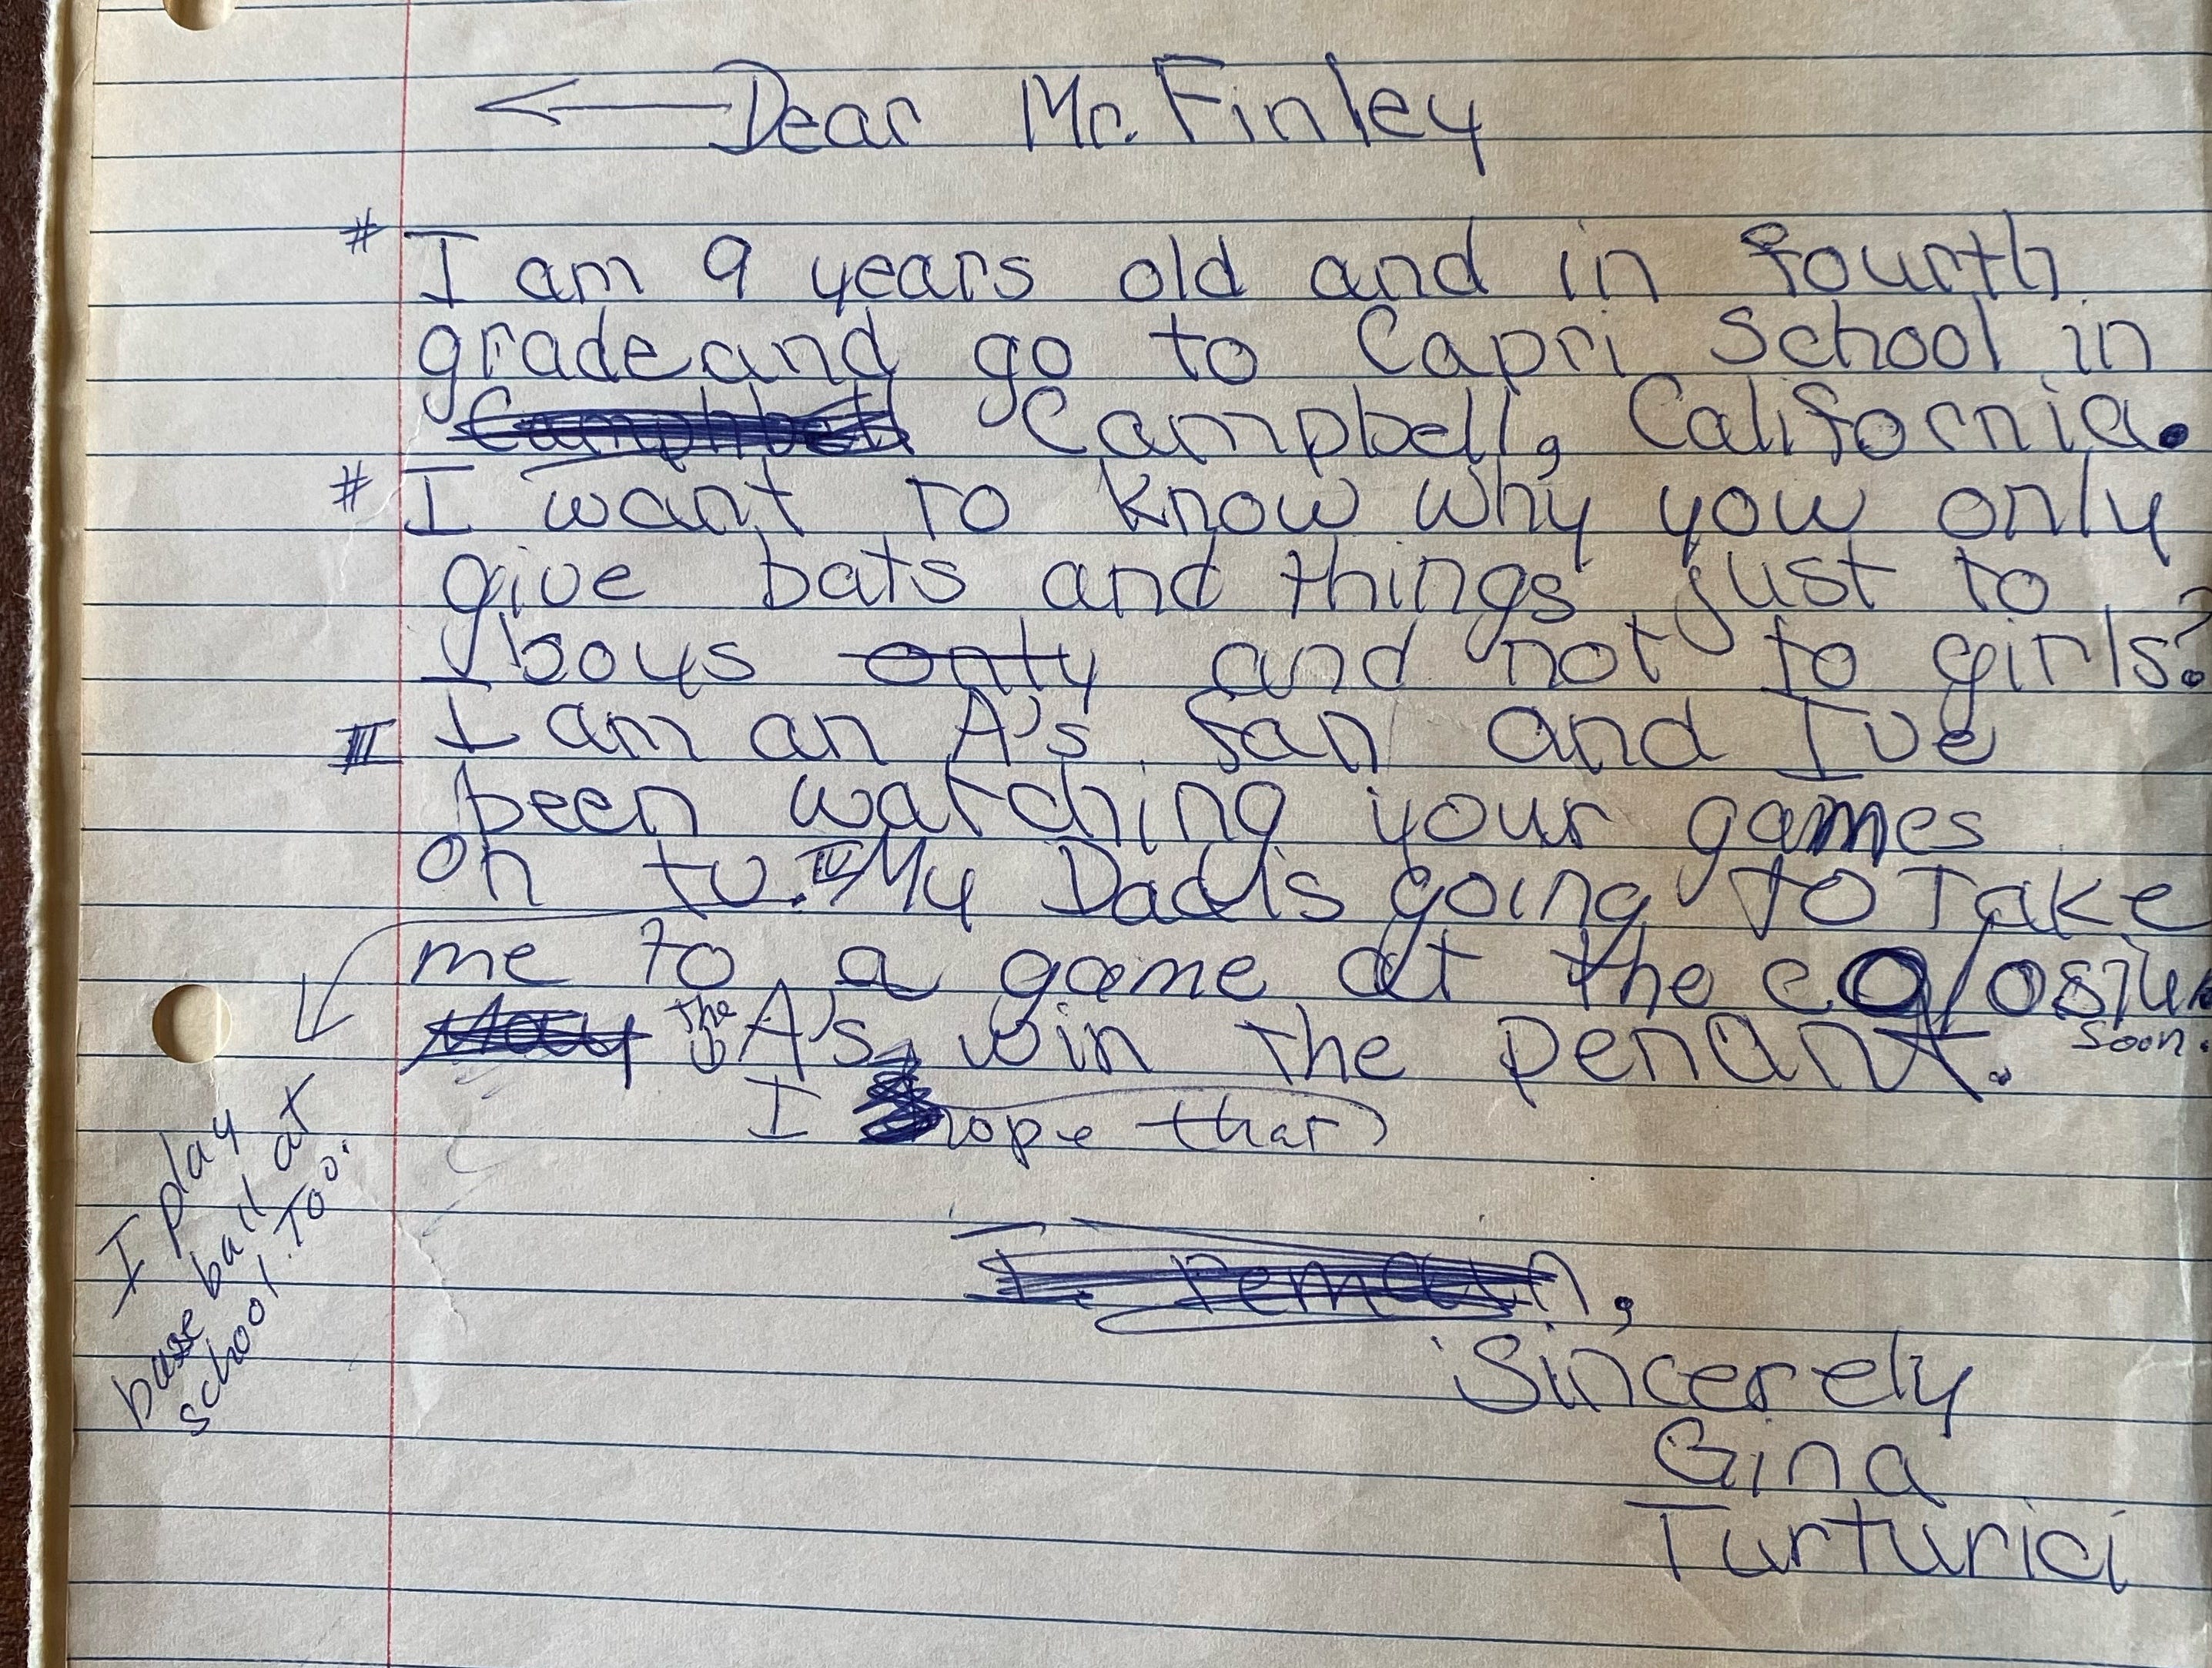 Dear Mr. Finley
# I am 9 years old and in fourth
grade and go to Capri School in
Camphbell Campbell, California.
# I want to know why you only
give bats and things just to
boys only and not to girls?
III I am an A's fan and I've
been watching your games
on tv. IV My Dad is going to take
me to a game at the colosium
soon.
May the A's, win the penant.
I hope that
I play
base ball at
school. Too.
I remain,
Sincerely
Gina
Turturici